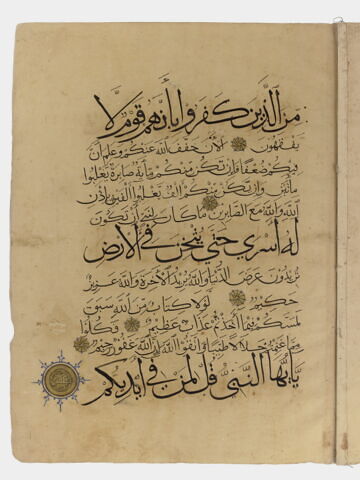 من الذين كفروا بأنهم قوم لا
يفقهون الآن خفف الله عنكم وعلم أن
فيكم ضعفا فإن تكن منكم مائة صابرة يغلبوا
مائتين وإن يكن منكم ألف يغلبوا ألفين بإذن
الله والله مع الصابرين ما كان لنبي أن تكون
له أسرى حتى يثخن في الأرض
تريدون عرض الدنيا والله يريد الآخرة والله عزيز
حكيم لولا كتاب من الله سبق
لمسكم فيما أخذتم عذاب عظيم فكلوا
مما غنمتم حلالا طيبا واتقوا الله إن الله غفور رحيم
يا أيها النبي قل لمن في أيديكم